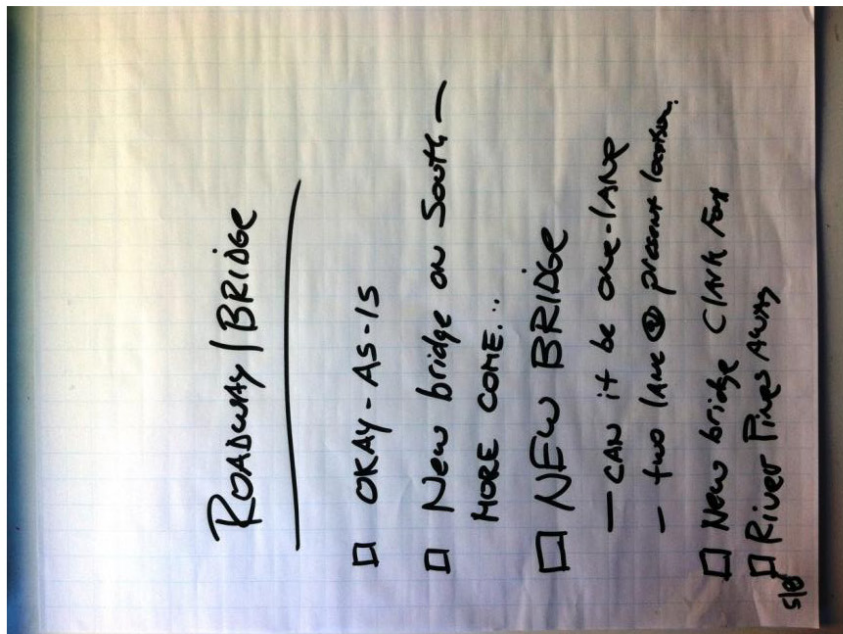 ROADWAY / BRIDGE
OKAY - AS - IS
New bridge on South —
MORE COME...
NEW BRIDGE
— CAN it be one-lane
— two lane @ present location.
New bridge Clark Fork
River Pines Away